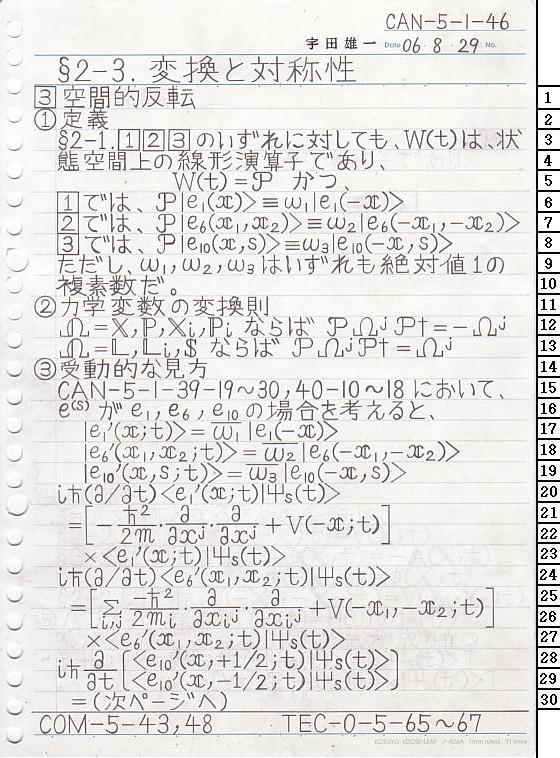 CAN-5-1-46
宇田雄一 Date 06・8・29 No.
§2-3. 変換と対称性
[3]空間的反転
①定義
§2-1.[1][2][3]のいずれに対しても、W(t)は、状
態空間上の線形演算子であり、
W(t)=𝒫 かつ、
[1]では、𝒫|e₁(x)>≡ω₁|e₁(-x)>
[2]では、𝒫|e₆(x₁,x₂)>≡ω₂|e₆(-x₁,-x₂)>
[3]では、𝒫|e₁₀(x,s)>≡ω₃|e₁₀(-x,s)>
ただし、ω₁,ω₂,ω₃はいずれも絶対値1の
複素数だ。
②力学変数の変換則
Ω=𝕏,ℙ,𝕏ᵢ,ℙᵢ ならば 𝒫Ωʲ𝒫†=-Ωʲ
Ω=𝕃,𝕃ᵢ,$ ならば 𝒫Ωʲ𝒫†=Ωʲ
③受動的な見方
CAN-5-1-39-19~30,40-10~18において、
e⁽ˢ⁾がe₁,e₆,e₁₀の場合を考えると、
|e₁'(x;t)>=ω̅₁|e₁(-x)>
|e₆'(x₁,x₂;t)>=ω̅₂|e₆(-x₁,-x₂)>
|e₁₀'(x,s;t)>=ω̅₃|e₁₀(-x,s)>
iħ(∂/∂t)<e₁'(x;t)|Ψs(t)>
=[-ħ²/2m・∂/∂xʲ・∂/∂xʲ+V(-x;t)]
×<e₁'(x;t)|Ψs(t)>
iħ(∂/∂t)<e₆'(x₁,x₂;t)|Ψs(t)>
=[Σi,j -ħ²/2mᵢ・∂/∂xᵢʲ・∂/∂xᵢʲ+V(-x₁,-x₂;t)]
×<e₆'(x₁,x₂;t)|Ψs(t)>
iħ ∂/∂t [<e₁₀'(x,+1/2;t)|Ψs(t)>
<e₁₀'(x,-1/2;t)|Ψs(t)>]
=(次ページへ)
COM-5-43,48 TEC-0-5-65~67
KOKUYO LOOSE-LEAF ノ-836A 7mm ruled 31 lines
1
2
3
4
5
6
7
8
9
10
11
12
13
14
15
16
17
18
19
20
21
22
23
24
25
26
27
28
29
30